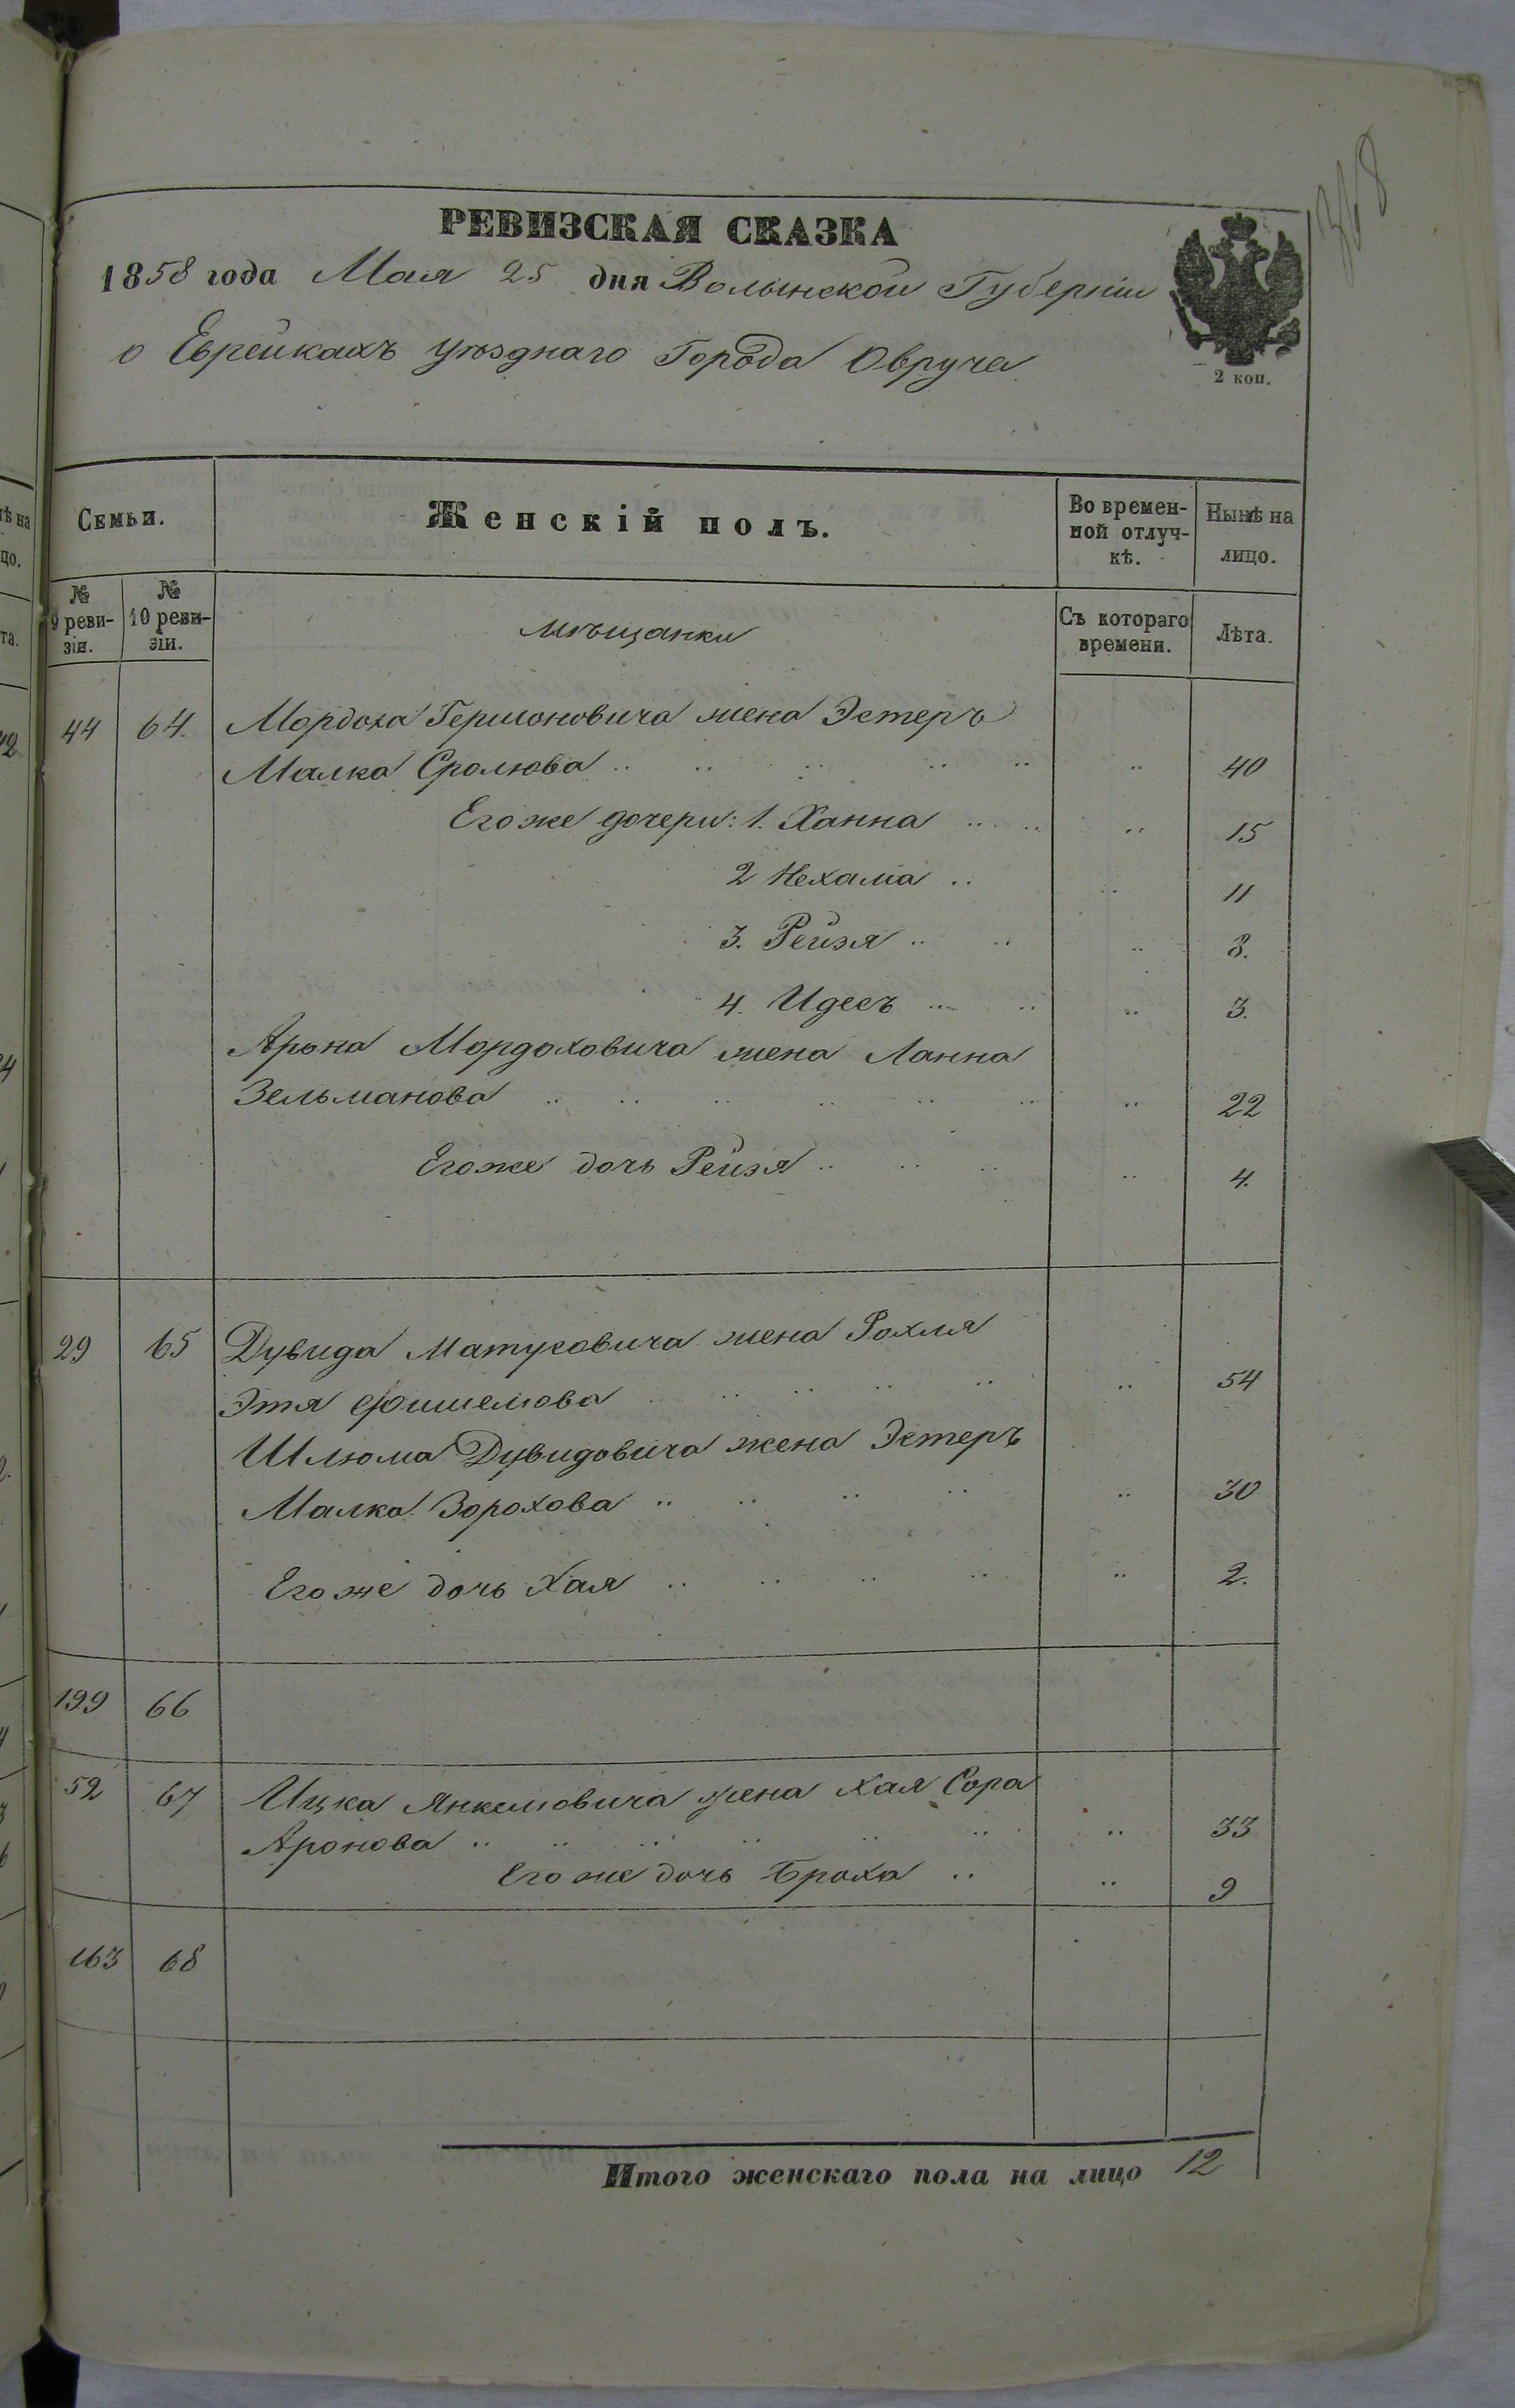 РЕВИЗСКАЯ СКАЗКА
1858 года Мая 25 дня Волынской Губерніи
о Еврейкахъ уѣзднаго Города Овруча
2 коп.
Семьи.
Женскій полъ.
Во времен-
ной отлуч-
кѣ.
Нынѣ на
лицо.
№
9 реви-
зіи.
№
10 реви-
зіи.
Мѣщанки
Съ котораго
времени.
Лѣта.
44 64. Мордоха Гершоновича жена Эстеръ
Малка Сролюва .. .. .. .. .. .. 40
Его же дочери: 1. Ханна .. .. .. 15
2 Нехама .. .. 11
3. Рейзя .. .. .. 8.
4. Идесъ .. .. .. 3.
Арона Мордоховича жена Ханна
Зельманова .. .. .. .. .. .. .. 22
Его же дочь Рейзя .. .. .. .. 4.
29 65 Дувида Матусовича жена Рохля
Этя Фишелюва .. .. .. .. .. 54
Шлюма Дувидовича жена Эстеръ
Малка Зорохова .. .. .. .. .. 30
Его же дочь Хая .. .. .. .. .. 2.
199 66
52 67 Ицка Янкелювича жена Хая Сора
Аронова .. .. .. .. .. .. .. 33
Его же дочь Броха .. .. 9
163 68
Итого женскаго пола на лицо 12